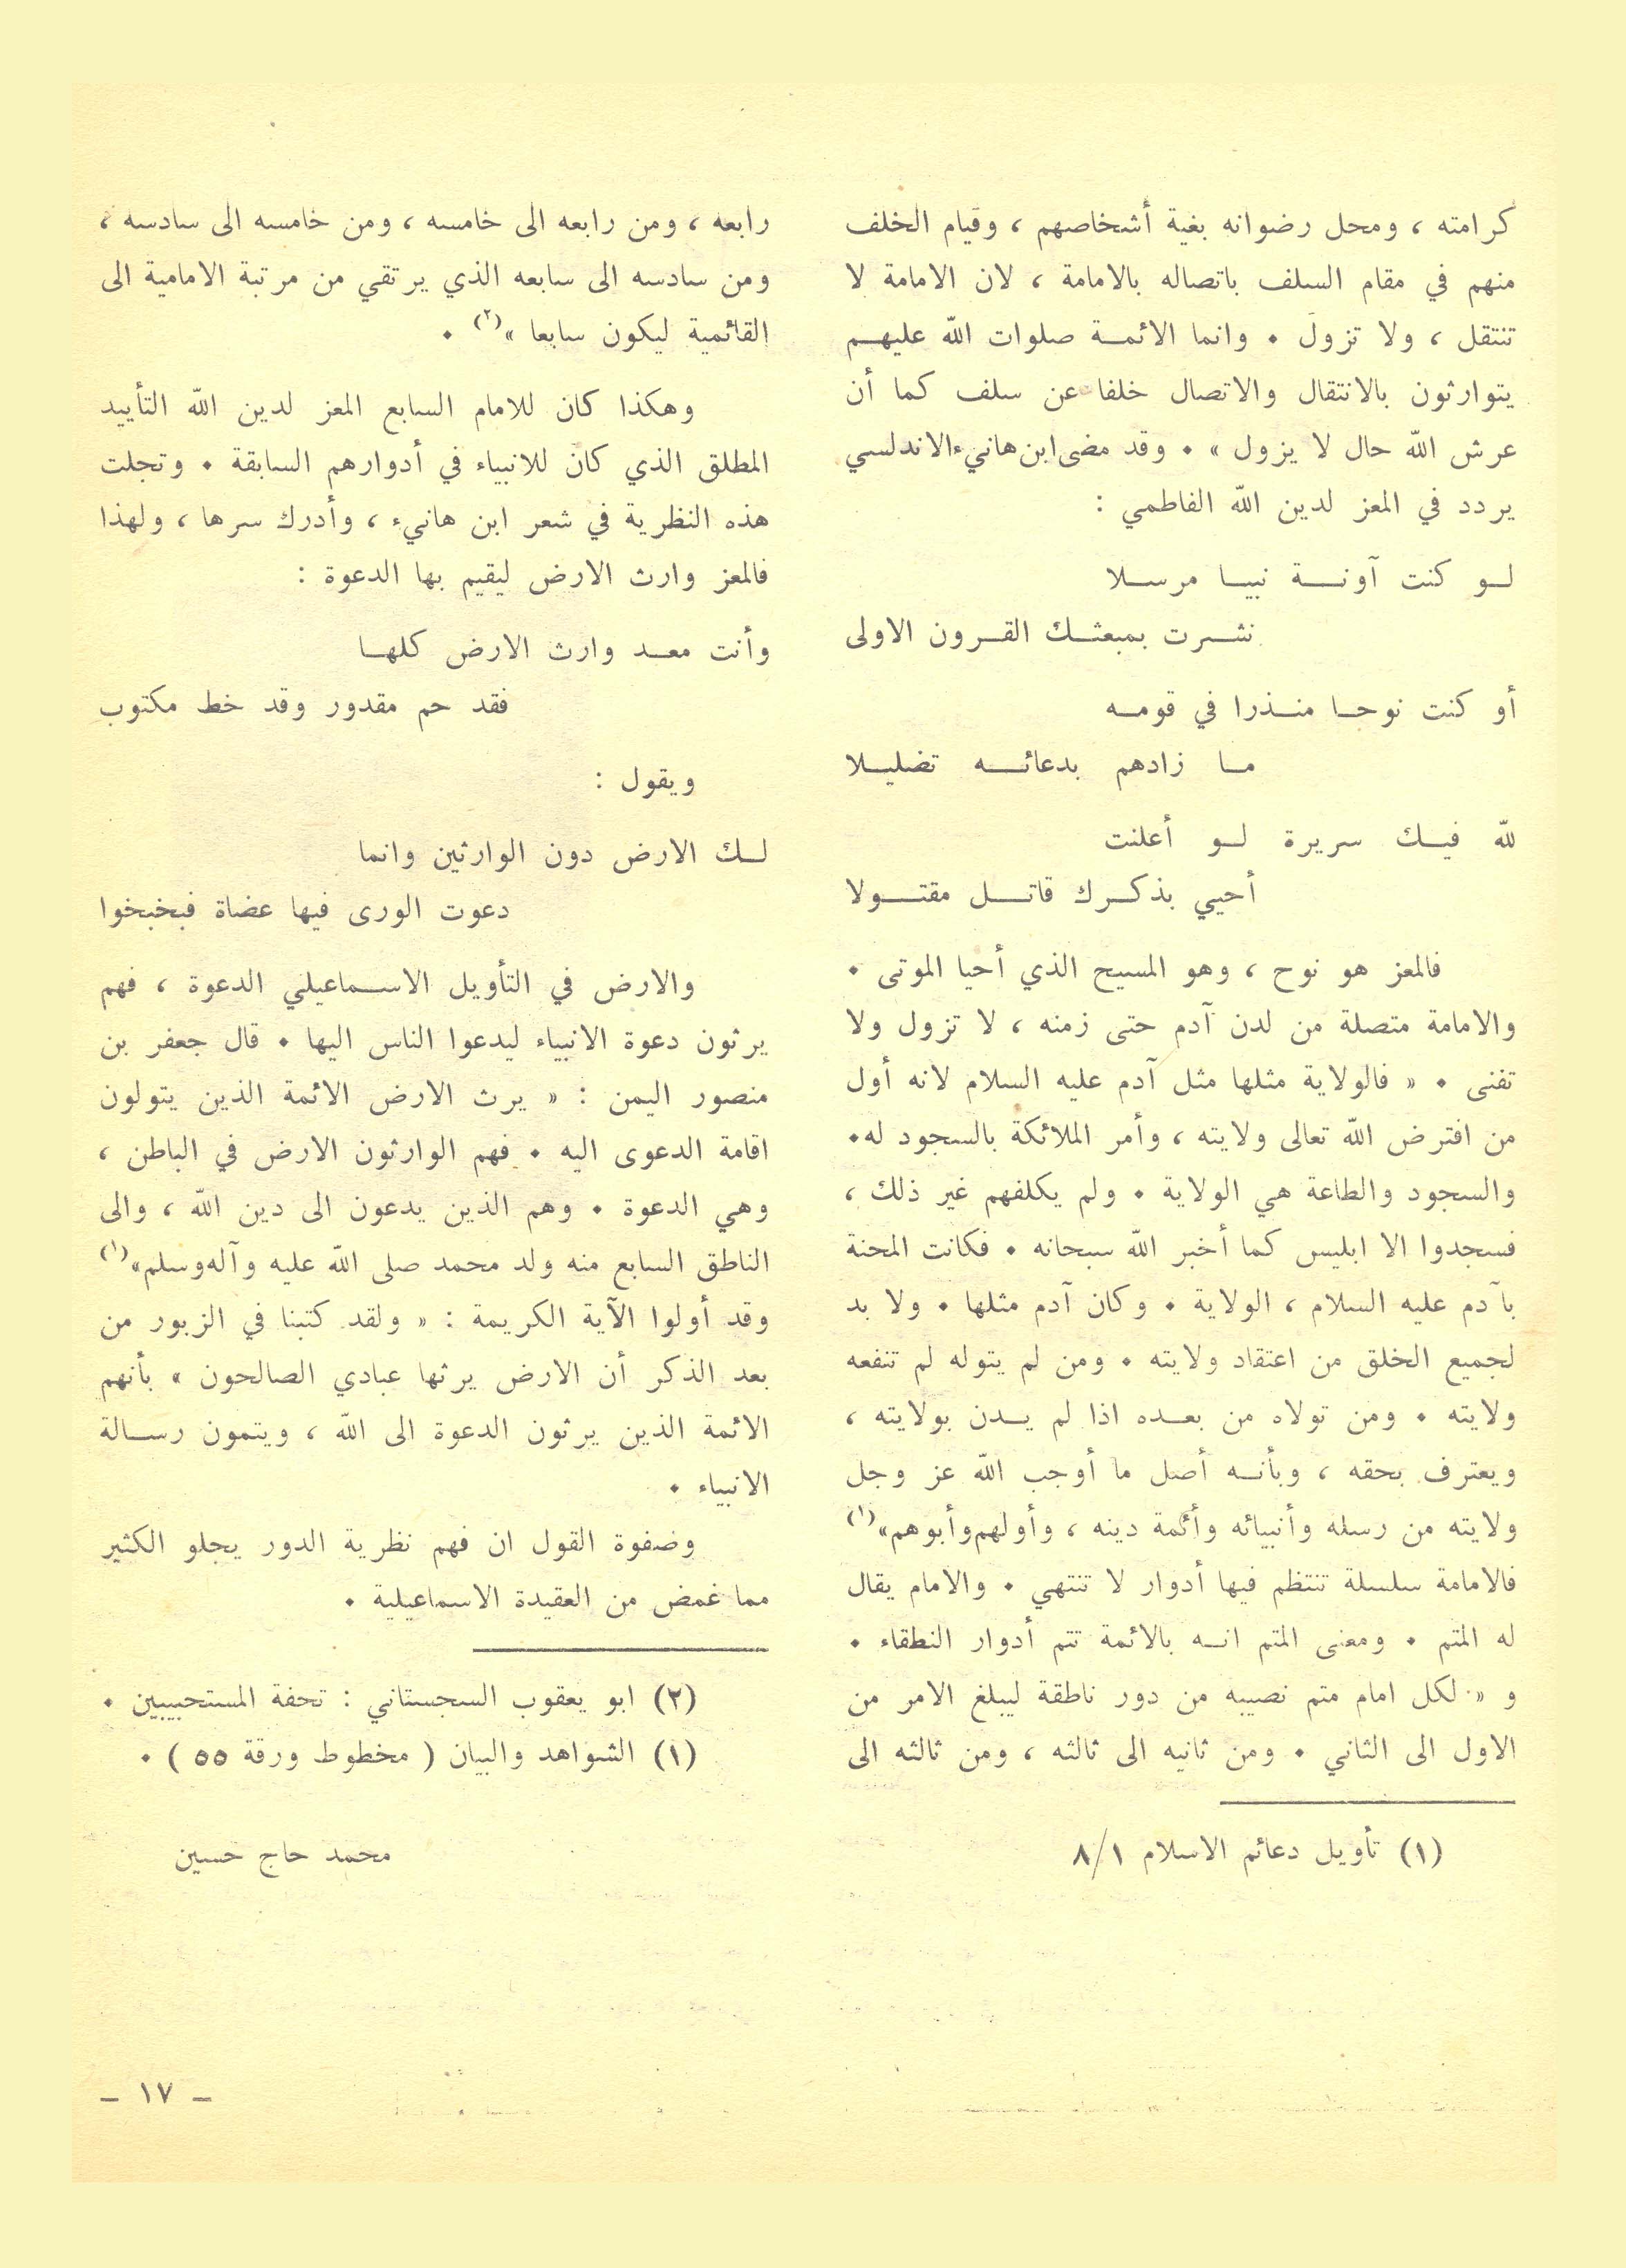 كرامته ، ومحل رضوانه بغية أشخاصهم ، وقيام الخلف
منهم في مقام السلف باتصاله بالامامة ، لان الامامة لا
تنتقل ، ولا تزول . وانما الائمــة صلوات الله عليهــم
يتوارثون بالانتقال والاتصال خلفا عن سلف كما أن
عرش الله حال لا يزول » . وقد مضى ابن هانيء الاندلسي
يردد في المعز لدين الله الفاطمي :
لــو كنت آونــــة نبيــا مرســلا
نشــرت بمبعثــك القــرون الاولى
أو كنت نوحــا منــذرا في قومــه
مــا زادهم بدعائــــه تضليــلا
لله فيــك سريرة لــو أعلنت
أحيي بذكــرك قاتــل مقتــــولا
فالمعز هو نوح ، وهو المسيح الذي أحيا الموتى .
والامامة متصلة من لدن آدم حتى زمنه ، لا تزول ولا
تفنى . « فالولاية مثلها مثل آدم عليه السلام لانه أول
من افترض الله تعالى ولايته ، وأمر الملائكة بالسجود له.
والسجود والطاعة هي الولاية . ولم يكلفهم غير ذلك ،
فسجدوا الا ابليس كما أخبر الله سبحانه . فكانت المحنة
بآدم عليه السلام ، الولاية . وكان آدم مثلها . ولا بد
لجميع الخلق من اعتقاد ولايته . ومن لم يتوله لم تنفعه
ولايته . ومن تولاه من بعــده اذا لم يــدن بولايته ،
ويعترف بحقه ، وبأنــه أصل ما أوجب الله عز وجل
ولايته من رسله وأنبيائه وأئمة دينه ، وأولهم وأبوهم»(١)
فالامامة سلسلة تنتظم فيها أدوار لا تنتهي . والامام يقال
له المتم . ومعنى المتم انــه بالائمة تتم أدوار النطقاء .
و « لكل امام متم نصيبه من دور ناطقة ليبلغ الامر من
الاول الى الثاني . ومن ثانيه الى ثالثه ، ومن ثالثه الى
(١) تأويل دعائم الاسلام ٨/١
رابعه ، ومن رابعه الى خامسه ، ومن خامسه الى سادسه ،
ومن سادسه الى سابعه الذي يرتقي من مرتبة الامامية الى
القائمية ليكون سابعا »(٢) .
وهكذا كان للامام السابع المعز لدين الله التأييد
المطلق الذي كان للانبياء في أدوارهم السابقة . وتجلت
هذه النظرية في شعر ابن هانيء ، وأدرك سرها ، ولهذا
فالمعز وارث الارض ليقيم بها الدعوة :
وأنت معــد وارث الارض كلهــا
فقد حم مقدور وقد خط مكتوب
ويقول :
لــك الارض دون الوارثين وانما
دعوت الورى فيها عضاة فبخبخوا
والارض في التأويل الاســماعيلي الدعوة ، فهم
يرثون دعوة الانبياء ليدعوا الناس اليها . قال جعفر بن
منصور اليمن : « يرث الارض الائمة الذين يتولون
اقامة الدعوى اليه . فهم الوارثون الارض في الباطن ،
وهي الدعوة . وهم الذين يدعون الى دين الله ، والى
الناطق السابع منه ولد محمد صلى الله عليه وآله وسلم»(١)
وقد أولوا الآية الكريمة : « ولقد كتبنا في الزبور من
بعد الذكر أن الارض يرثها عبادي الصالحون » بأنهم
الائمة الذين يرثون الدعوة الى الله ، ويتمون رســالة
الانبياء .
وصفوة القول ان فهم نظرية الدور يجلو الكثير
مما غمض من العقيدة الاسماعيلية .
(٢) ابو يعقوب السجستاني : تحفة المستحبيبين .
(١) الشواهد والبيان ( مخطوط ورقة ٥٥ ) .
محمد حاج حسين
– ١٧ –